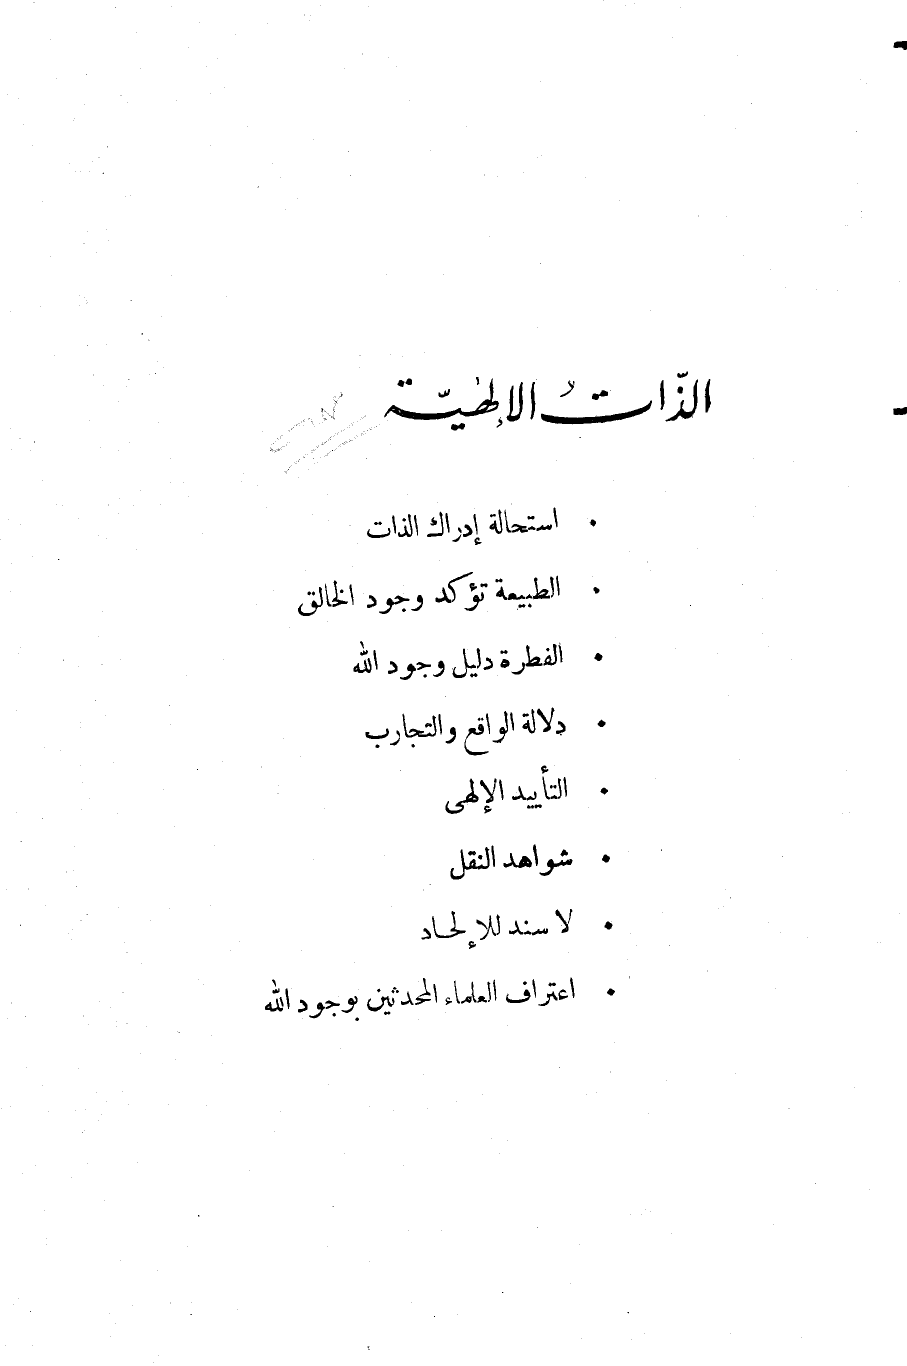 الذّاتُ الإلهيّة
• استحالة إدراك الذات
• الطبيعة تؤكد وجود الخالق
• الفطرة دليل وجود الله
• دلالة الواقع والتجارب
• التأييد الإلهى
• شواهد النقل
• لا سند للإلحاد
• اعتراف العلماء المحدثين بوجود الله